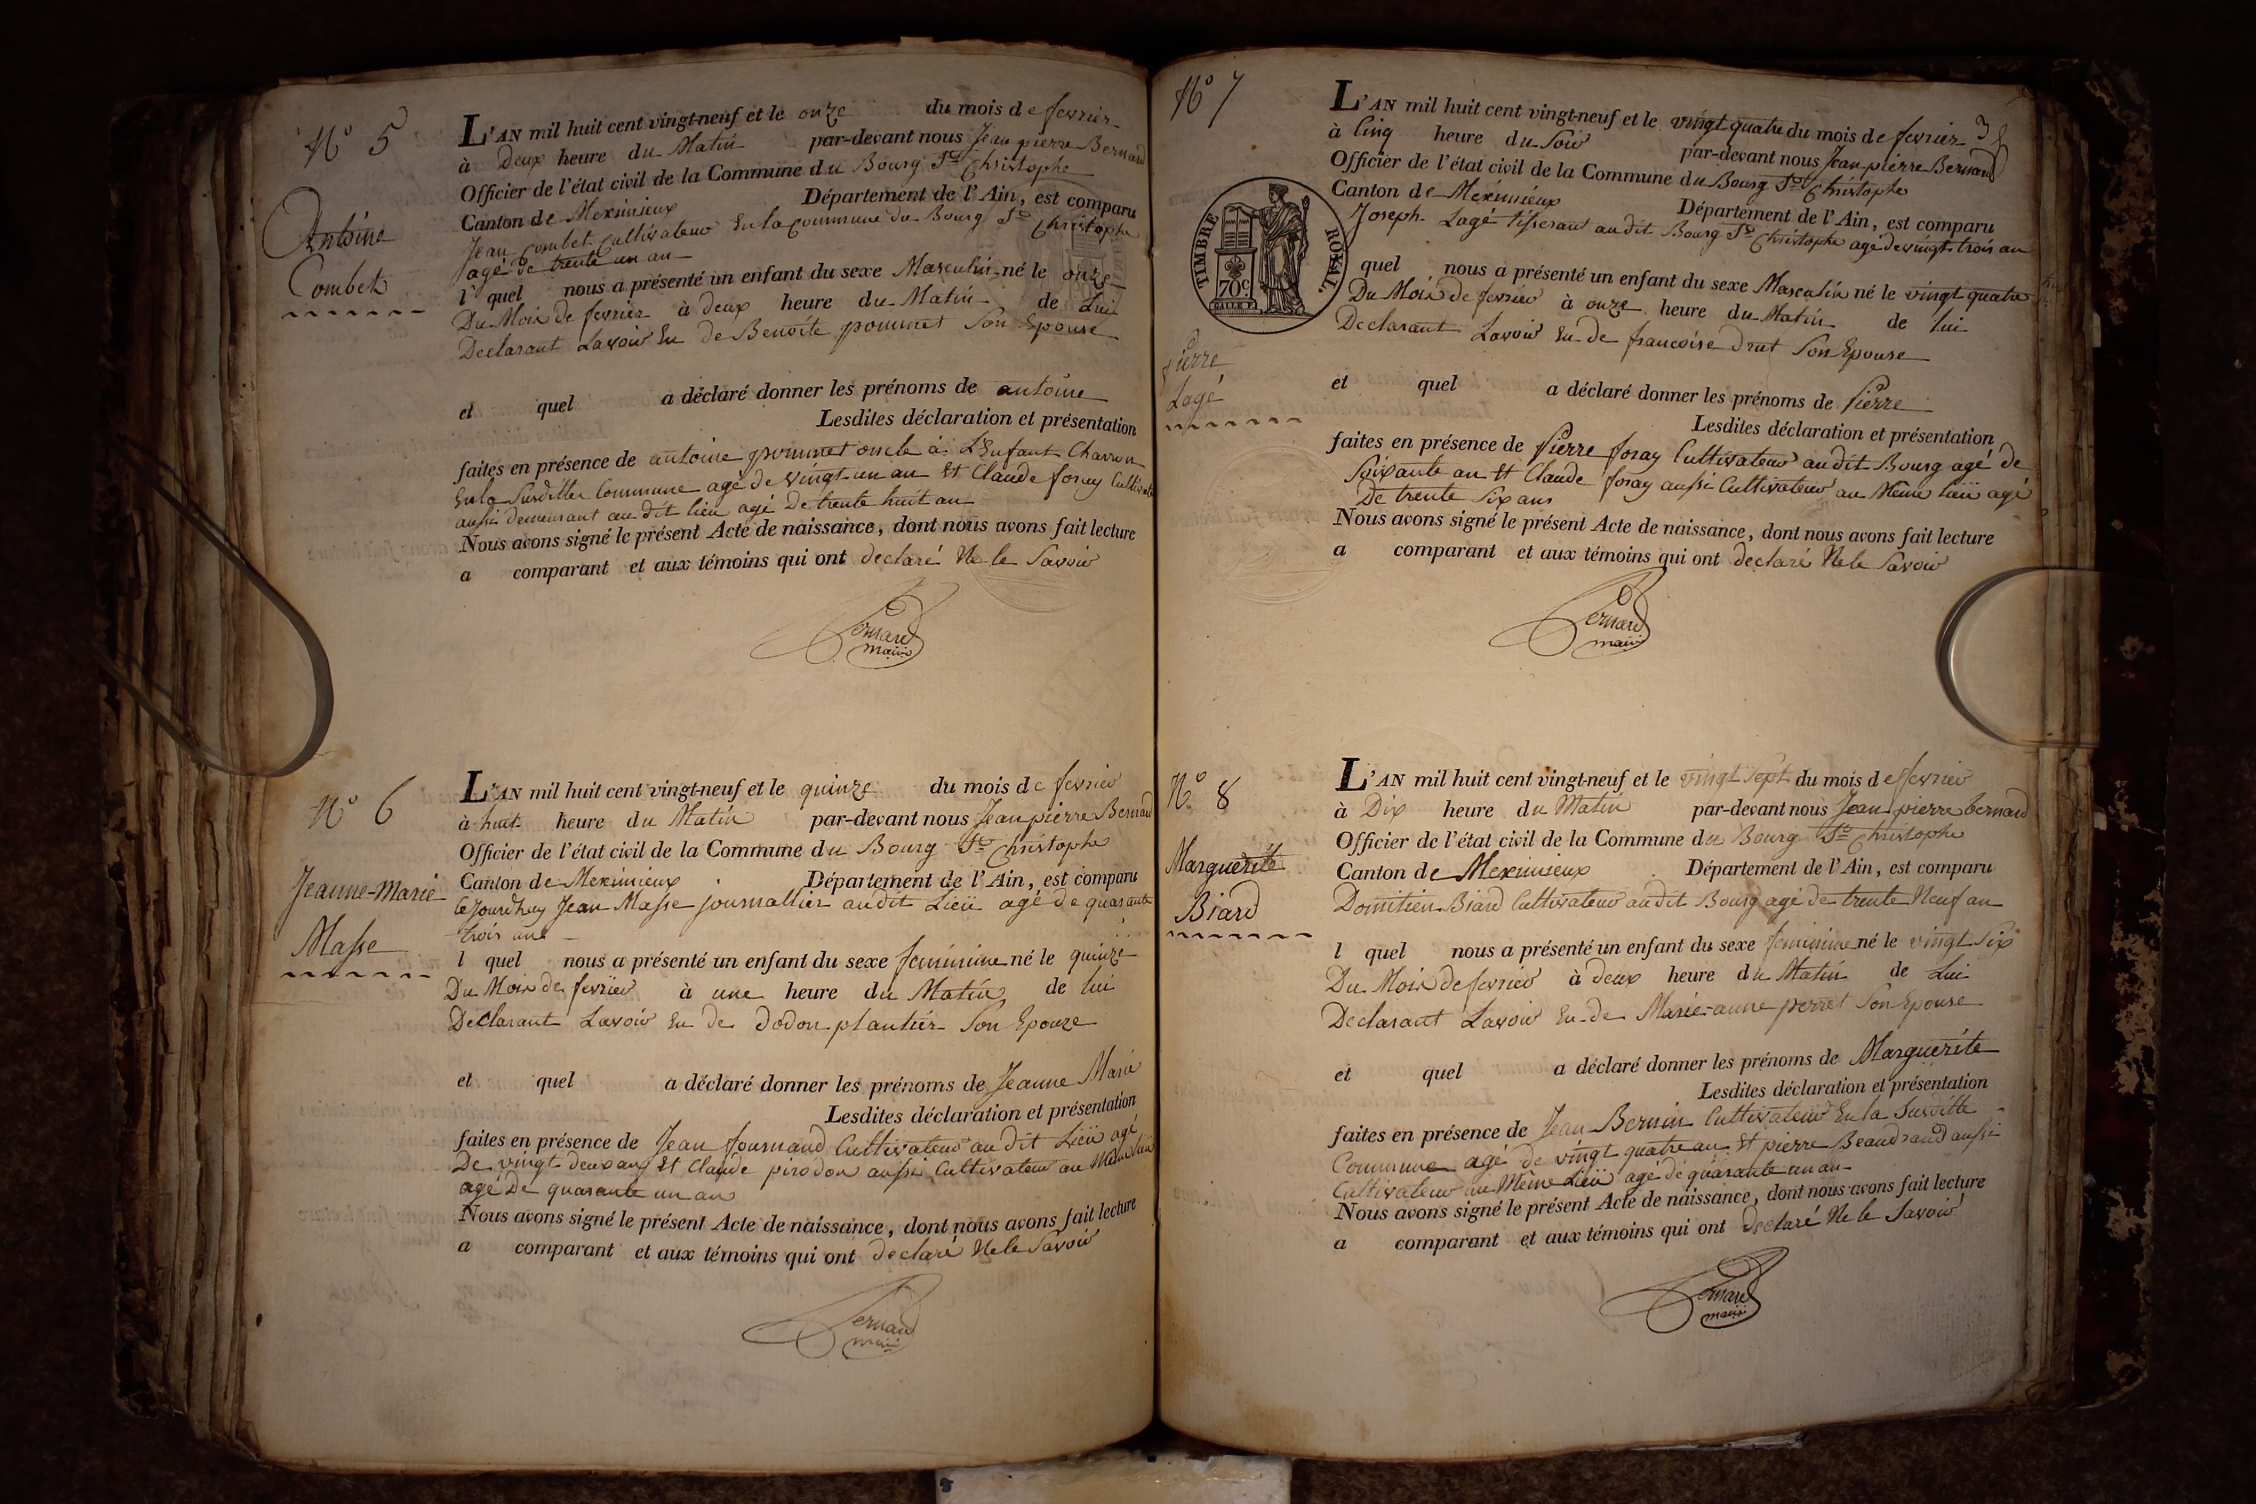 N° 5
Antoine
Combet
L'AN mil huit cent vingt-neuf et le onze du mois de fevrier
à Deux heure du Matin par-devant nous Jean pierre Bernard
Officier de l'état civil de la Commune du Bourg St Christophe
Canton de Meximieux Département de l'Ain, est comparu
Jean Combet Cultivateur En la Commune du Bourg St Christophe
agé de trente un an
l quel nous a présenté un enfant du sexe Masculin né le onze
Du Mois de fevrier à deux heure du Matin de Lui
Declarant Lavoir Eu de Benoite pommet Son Epouse
et quel a déclaré donner les prénoms de antoine
Lesdites déclaration et présentation
faites en présence de antoine pommet oncle à L'Enfant Charron
En la Susditte Commune agé de vingt un an Et Claude foray Cultivate
aussi demeurant au dit lieu agé De trente huit an
Nous avons signé le présent Acte de naissance, dont nous avons fait lecture
a comparant et aux témoins qui ont declaré Ne le Savoir
Bernard
maire
N° 6
Jeanne-Marie
Masse
L'AN mil huit cent vingt-neuf et le quinze du mois de fevrier
à huit heure du Matin par-devant nous Jean pierre Bernard
Officier de l'état civil de la Commune du Bourg St Christophe
Canton de Meximieux Département de l'Ain, est comparu
Cejourdhuy Jean Masse journallier audit Lieu agé de quarante
trois ans
l quel nous a présenté un enfant du sexe feminime né le quinze
Du Mois de fevrier à une heure du Matin de lui
Declarant Lavoir Eu de Dodon plantier Son Epouze
et quel a déclaré donner les prénoms de Jeanne Marie
Lesdites déclaration et présentation
faites en présence de Jean fournand Cultivateur au dit Lieu agé
De vingt-deux an Et Claude pirodon aussi Cultivateur au Même lieu
agé De quarante un an
Nous avons signé le présent Acte de naissance, dont nous avons fait lecture
a comparant et aux témoins qui ont declaré Ne le Savoir
Bernard
maire
N° 7
3
TIMBRE ROYAL
70c
Pierre
Lagé
L'AN mil huit cent vingt-neuf et le vingt quatre du mois de fevrier
à Cinq heure du Soir par-devant nous Jean-pierre Bernard
Officier de l'état civil de la Commune du Bourg St Christophe
Canton de Meximieux Département de l'Ain, est comparu
Joseph Lagé tisserant au dit Bourg St Christophe agé de vingt-trois an
quel nous a présenté un enfant du sexe Masculin né le vingt quatre
Du Mois de fevrier à onze heure du Matin de lui
Declarant Lavoir Eu de francoise Drut Son Epouse
et quel a déclaré donner les prénoms de Pierre
Lesdites déclaration et présentation
faites en présence de Pierre foray Cultivateur au dit Bourg agé de
Soixante an Et Claude foray aussi Cultivateur au Même lieu agé
De trente Six ans
Nous avons signé le présent Acte de naissance, dont nous avons fait lecture
a comparant et aux témoins qui ont declaré Ne le Savoir
Bernard
maire
N° 8
Marguerite
Biard
L'AN mil huit cent vingt-neuf et le vingt sept du mois de fevrier
à Dix heure du Matin par-devant nous Jean pierre bernard
Officier de l'état civil de la Commune du Bourg St Christophe
Canton de Meximieux Département de l'Ain, est comparu
Domitien Biard Cultivateur au dit Bourg agé de trente Neuf an
l quel nous a présenté un enfant du sexe feminime né le vingt Six
Du Mois de fevrier à deux heure du Matin de Lui
Declarant Lavoir Eu de Marie-anne perret Son Epouse
et quel a déclaré donner les prénoms de Marguerite
Lesdites déclaration et présentation
faites en présence de Jean Bernin Cultivateur En la Susditte
Commune agé de vingt quatre an Et pierre Beaudrand aussi
Cultivateur au Même Lieu agé de quarante un an
Nous avons signé le présent Acte de naissance, dont nous avons fait lecture
a comparant et aux témoins qui ont declaré Ne le Savoir
Bernard
maire